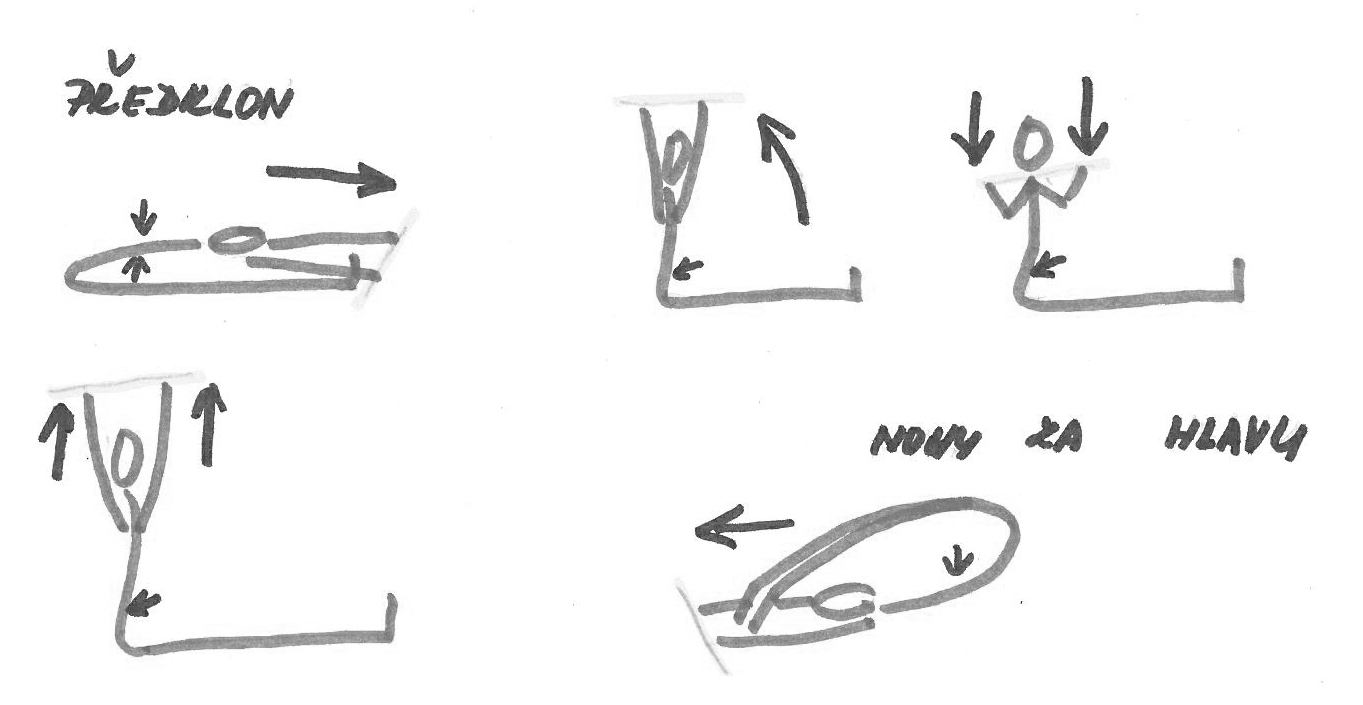 PŘEDKLON
NOHY ZA HLAVU